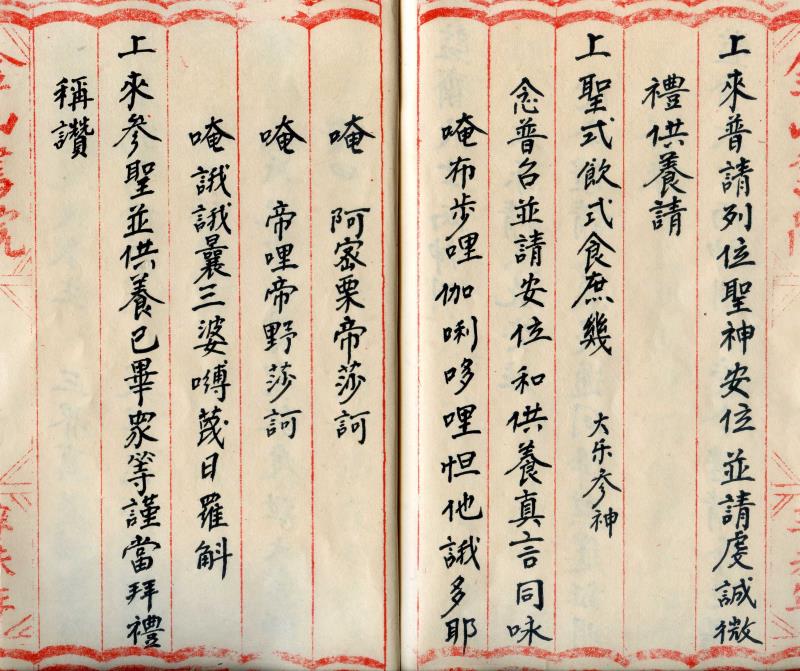 上來普請列位聖神安位並請虔誠微
禮供養請
上聖式飲式食庶幾 大乐参神
念普召並請安位和供養真言同咏
唵布步哩伽唎哆哩怛他誐多耶
唵 阿密栗帝莎訶
唵 帝哩帝野莎訶
唵誐誐曩三婆嚩蕟日羅斛
上來參聖並供養已畢眾等謹當拜禮
稱讚